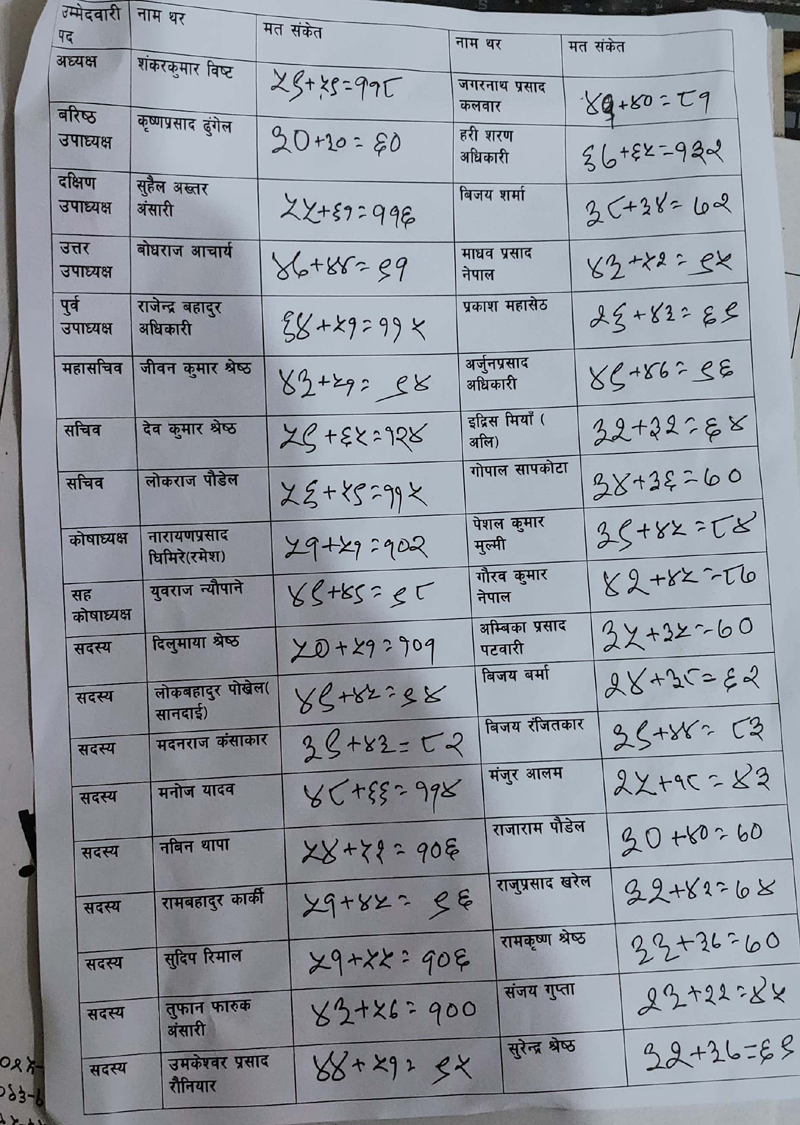 उम्मेदवारी पद | नाम थर | मत संकेत | नाम थर | मत संकेत
अध्यक्ष | शंकरकुमार विष्ट | ५९+५९=११८ | जगरनाथ प्रसाद कलवार | ४१+४०=८१
बरिष्ठ उपाध्यक्ष | कृष्णप्रसाद ढुंगेल | ३०+३०=६० | हरी शरण अधिकारी | ६७+६५=१३२
दक्षिण उपाध्यक्ष | सुहैल अख्तर अंसारी | ५५+६१=११६ | बिजय शर्मा | ३८+३४=७२
उत्तर उपाध्यक्ष | बोधराज आचार्य | ४७+४४=९१ | माधव प्रसाद नेपाल | ४३+५२=९५
पुर्व उपाध्यक्ष | राजेन्द्र बहादुर अधिकारी | ६४+५१=११५ | प्रकाश महासेठ | २६+४३=६९
महासचिव | जीवन कुमार श्रेष्ठ | ४३+५१=९४ | अर्जुनप्रसाद अधिकारी | ४९+४७=९६
सचिव | देव कुमार श्रेष्ठ | ५९+६५=१२४ | इद्रिस मियाँ ( अलि) | ३२+३२=६४
सचिव | लोकराज पौडेल | ५६+५९=११५ | गोपाल सापकोटा | ३४+३६=७०
कोषाध्यक्ष | नारायणप्रसाद घिमिरे(रमेश) | ५१+५१=१०२ | पेशल कुमार मुल्मी | ३९+४५=८४
सह कोषाध्यक्ष | युवराज न्यौपाने | ४९+४९=९८ | गौरव कुमार नेपाल | ४२+४५=८७
सदस्य | दिलुमाया श्रेष्ठ | ५०+५१=१०१ | अम्बिका प्रसाद पटवारी | ३५+३५=७०
सदस्य | लोकबहादुर पोखेल( सानदाई) | ४९+४५=९४ | बिजय बर्मा | २४+३८=६२
सदस्य | मदनराज कंसाकार | ३९+४३=८२ | बिजय रंजितकार | ३९+४४=८३
सदस्य | मनोज यादव | ४८+६६=११४ | मंजुर आलम | २५+१८=४३
सदस्य | नबिन थापा | ५४+५२=१०६ | राजाराम पौडेल | ३०+४०=७०
सदस्य | रामबहादुर कार्की | ५१+४५=९६ | राजुप्रसाद खरेल | ३२+४२=७४
सदस्य | सुदिप रिमाल | ५१+५५=१०६ | रामकृष्ण श्रेष्ठ | ३३+३७=७०
सदस्य | तुफान फारुक अंसारी | ४३+५७=१०० | संजय गुप्ता | २३+२२=४५
सदस्य | उमकेश्वर प्रसाद रौनियार | ४४+५१=९५ | सुरेन्द्र श्रेष्ठ | ३२+३७=६९